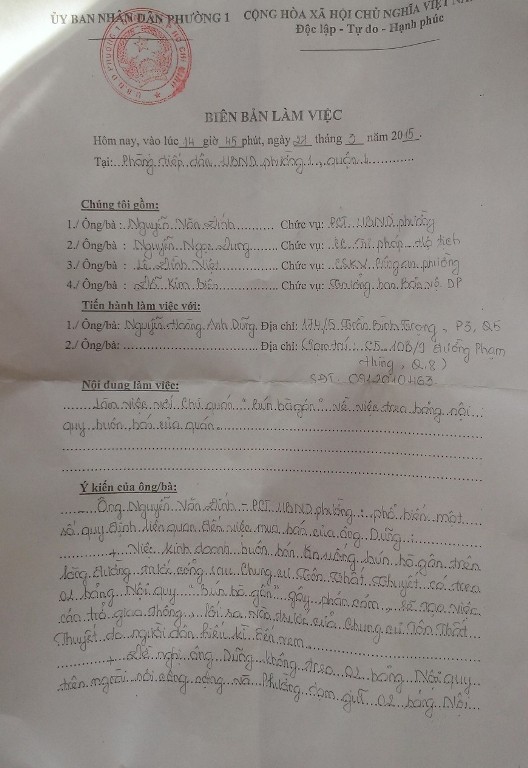 ỦY BAN NHÂN DÂN PHƯỜNG 1 CỘNG HÒA XÃ HỘI CHỦ NGHĨA VIỆT NA
Độc lập - Tự do - Hạnh phúc
BIÊN BẢN LÀM VIỆC
Hôm nay, vào lúc 14 giờ 45 phút, ngày 27 tháng 3 năm 2015.
Tại: Phòng tiếp dân UBND phường 1, quận
Chúng tôi gồm:
1./ Ông/bà : Nguyễn Văn Đính Chức vụ: PCT UBND phường
2./ Ông/bà : Nguyễn Ngọc Dung Chức vụ: CC Tư pháp hộ tịch
3./ Ông/bà : Lê Đình Việt Chức vụ: CSKV Công an phường
4./ Ông/bà : Kim Chức vụ: Trưởng ban Bảo vệ DP
Tiến hành làm việc với:
1./ Ông/bà: Nguyễn Hoàng Anh Dũng. Địa chỉ: 174/5 Trần Bình Trọng, P3, Q5
2./ Ông/bà: Địa chỉ: (Tạm trú: C5 10B/9 đường Phạm
Hùng, Q.8)
SĐT 0912010463
Nội dung làm việc:
Làm việc với chủ quán "Bún bà gòn" về việc treo bảng nội
quy buôn bán của quán.
Ý kiến của ông/bà:
Ông Nguyễn Văn Đính - PCT UBND phường: phổ biến một
số quy định liên quan đến việc mua bán của ông Dũng:
+ Việc kinh doanh buôn bán ăn uống bún bà gòn trên
lòng đường trước cổng sau Chung cư Tôn Thất Thuyết có treo
02 bảng Nội quy "Bún bà gòn" gây phản cảm, sẽ tạo việc
cản trở giao thông, lối ra vào trước của Chung cư Tôn Thất
Thuyết do người dân hiếu kì đến xem.
+ Đề nghị ông Dũng không treo 02 bảng Nội quy
trên ngoài nơi công cộng và Phường tạm giữ 02 bảng Nội